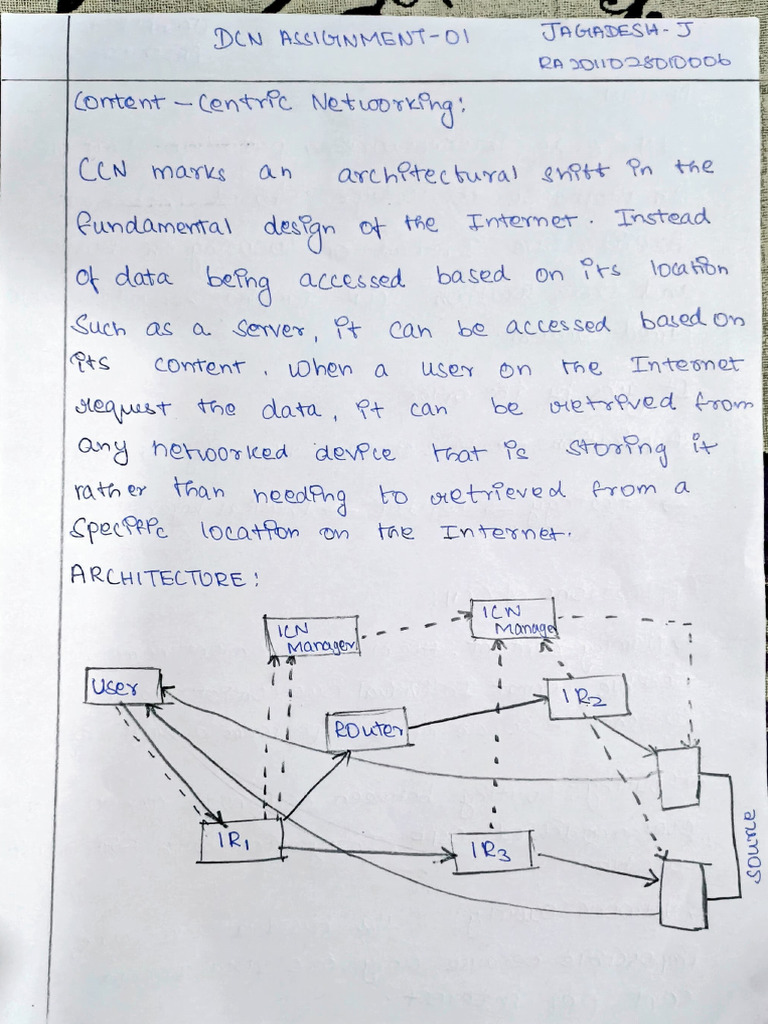 DCN ASSIGNMENT-01
JAGADESH-J
RA2011028010006
Content - Centric Networking:
CCN marks an architectural shift in the
fundamental design of the Internet. Instead
of data being accessed based on its location
Such as a server, it can be accessed based on
its content. When a user on the Internet
request the data, it can be retrived from
any networked device that is storing it
rather than needing to retrieved from a
specific location on the Internet.
ARCHITECTURE:
ICN Manager
ICN Manage
User
IR2
ROuter
IR1
IR3
source